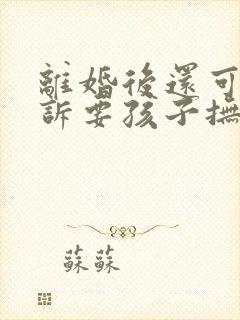 離婚後還可
訴要孩子撫
蘇蘇